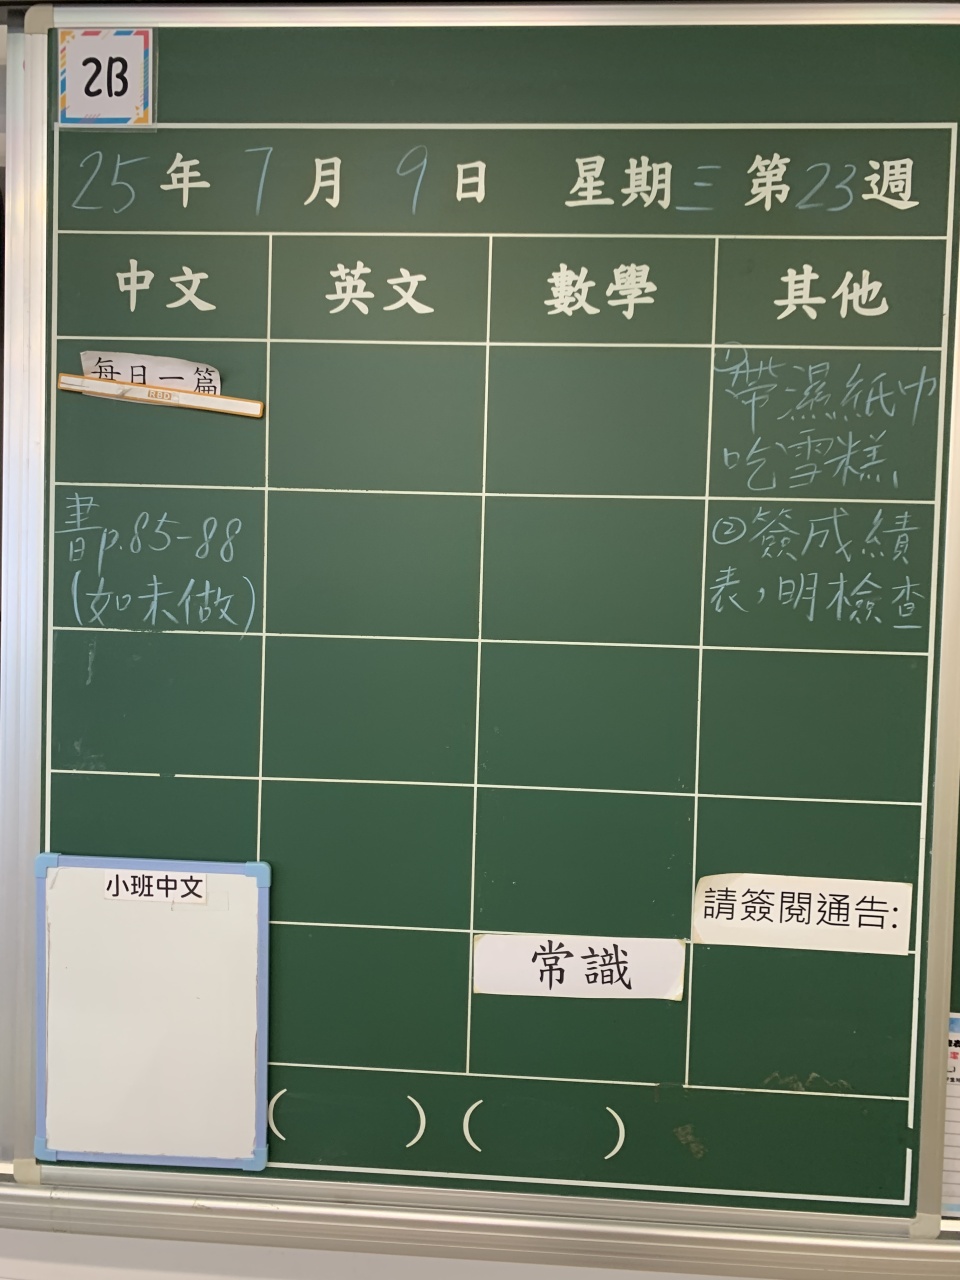 2B
25年7月9日 星期三 第23週
中文 英文 數學 其他
每日一篇
①帶濕紙巾
吃雪糕
書p.85-88
(如未做)
②簽成績
表，明檢查
小班中文
請簽閱通告:
常識
( ) ( )